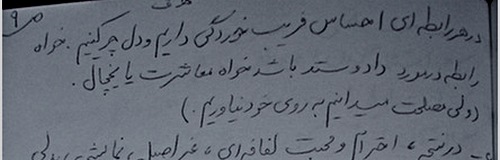 در هر رابطه ای احساس فریب خوردگی داریم و دل چرکینیم. خواه
رابطه درمورد داد و ستد باشد خواه معاشرت یا یخچال.
(ولی مصلحت میدانیم به روی خود نیاوریم.)
احترام و محبت لفافه‌ای، غیر اصیل، نمایشی، بدلی